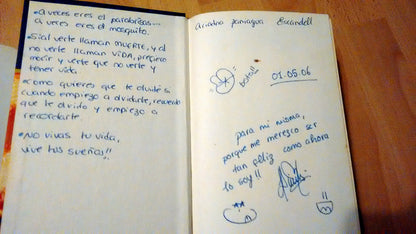 • A veces eres el parabrisas...
a veces eres el mosquito.
• Si al verte llaman muerte, y al
no verte llaman vida, prefiero
morir y verte que no verte y
tener vida.
• como quieres que te olvide si
cuando empiezo a olvidarte, recuerdo
que te olvido y empiezo a
recordarte.
• NO vivas tu vida,
vive tus sueños!!
Ariadna paniagua Escandell
bote!!
01.05.06
para mi misma,
porque me merezco ser
tan feliz como ahora
lo soy!!